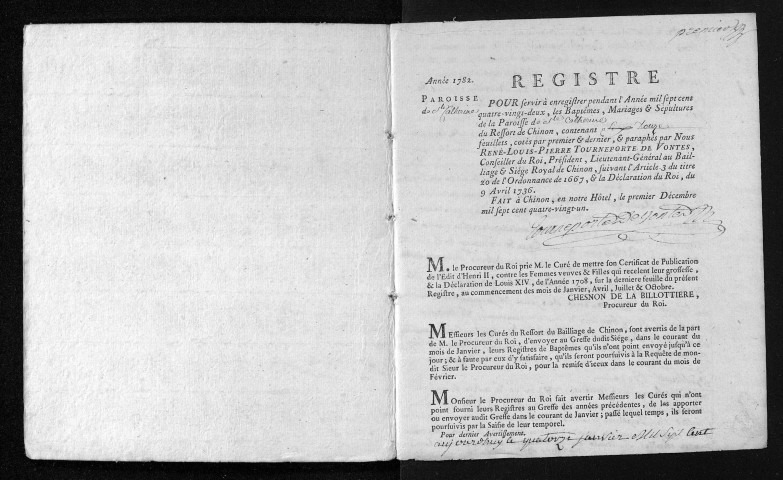 premier
Année 1782.
REGISTRE
PAROISSE
de ste Catherine
POUR servir à enregistrer pendant l'Année mil sept cens
quatre-vingt-deux, les Baptêmes, Mariages & Sépultures
de la Paroisse de ste Catherine
du Ressort de Chinon, contenant
feuillets, cotés par premier & dernier, & paraphés par Nous
RENÉ-LOUIS-PIERRE TOURNEPORTE DE VONTES,
Conseiller du Roi, Président, Lieutenant-Général au Bail-
liage & Siége Royal de Chinon, suivant l'Article 3 du titre
20 de l'Ordonnance de 1667, & la Déclaration du Roi, du
9 Avril 1736.
FAIT à Chinon, en notre Hôtel, le premier Décembre
mil sept cent quatre-vingt-un.
Tourneporte De Vontes
M. le Procureur du Roi prie M. le Curé de mettre son Certificat de Publication
de l'Edit d'Henri II, contre les Femmes veuves & Filles qui recelent leur grossesse,
& la Déclaration de Louis XIV, de l'Année 1708, sur la derniere feuille du présent
Registre, au commencement des mois de Janvier, Avril, Juillet & Octobre.
CHESNON DE LA BILLOTTIERE,
Procureur du Roi.
MEssieurs les Curés du Ressort du Bailliage de Chinon, sont avertis de la part
de M. le Procureur du Roi, d'envoyer au Greffe dudit Siége, dans le courant du
mois de Janvier, leurs Registres de Baptêmes qu'ils n'ont point envoyé jusqu'à ce
jour; & à faute par eux d'y satisfaire, qu'ils seront poursuivis à la Requête de mon-
dit Sieur le Procureur du Roi, pour la remise d'iceux dans le courant du mois de
Février.
MOnsieur le Procureur du Roi fait avertir Messieurs les Curés qui n'ont
point fourni leurs Registres au Greffe des années précédentes, de les apporter
ou envoyer audit Greffe dans le courant de Janvier; passé lequel temps, ils seront
poursuivis par la Saisie de leur temporel.
Pour dernier Avertissement.
aujourdhuy le quatorze janvier Mil Sept Cent